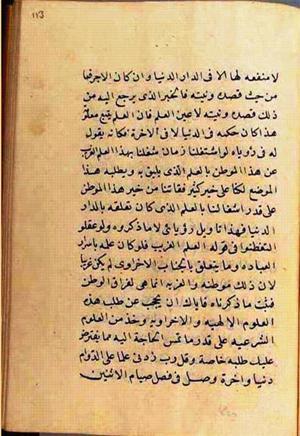 ١١٣
لا منفعه لها الا فى الدار الدنيا وان كان الاجر فيها
من حيث قصده ونيته فالخير الذى يرجع اليه من
ذلك قصده ونيته لا عين العلم فان العلم يتبع معلومه
هذا كان حكمه فى الدنيا لا فى الآخرة فكانه يقول
له فى رؤياه لو اشتغلنا زمان شغلنا بهذا العلم الغريب
عن هذا الموطن بالعلم الذى يليق به ويطلبه هذا
الموضع لكنا على خير كثير ففاتنا من خير هذا الموطن
على قدر اشتغالنا بالعلم الذى كان تعلقه بالدار
الدنيا فهذا تاويل رؤياى لا ما ذكروه ولو عقلوا
لتفطنوا فى قوله العلم الغريب فلو كان علمه باسرار
العباده وما يتعلق بالجناب الاخراوى لم يكن غريبا
لان ذلك موطنه والغربه انما هى لفراق الوطن
فثبت ما ذكرناه فاياك ان تحجب عن طلب هذه
العلوم الالهيه والاخراويه وخذ من العلوم
الشرعيه على قدر ما تمس الحاجة اليه مما يفترض
عليك طلبه خاصة وقل رب زدنى علما على الدوام
دنيا واخرة وصل فى فصل صيام الاثنين